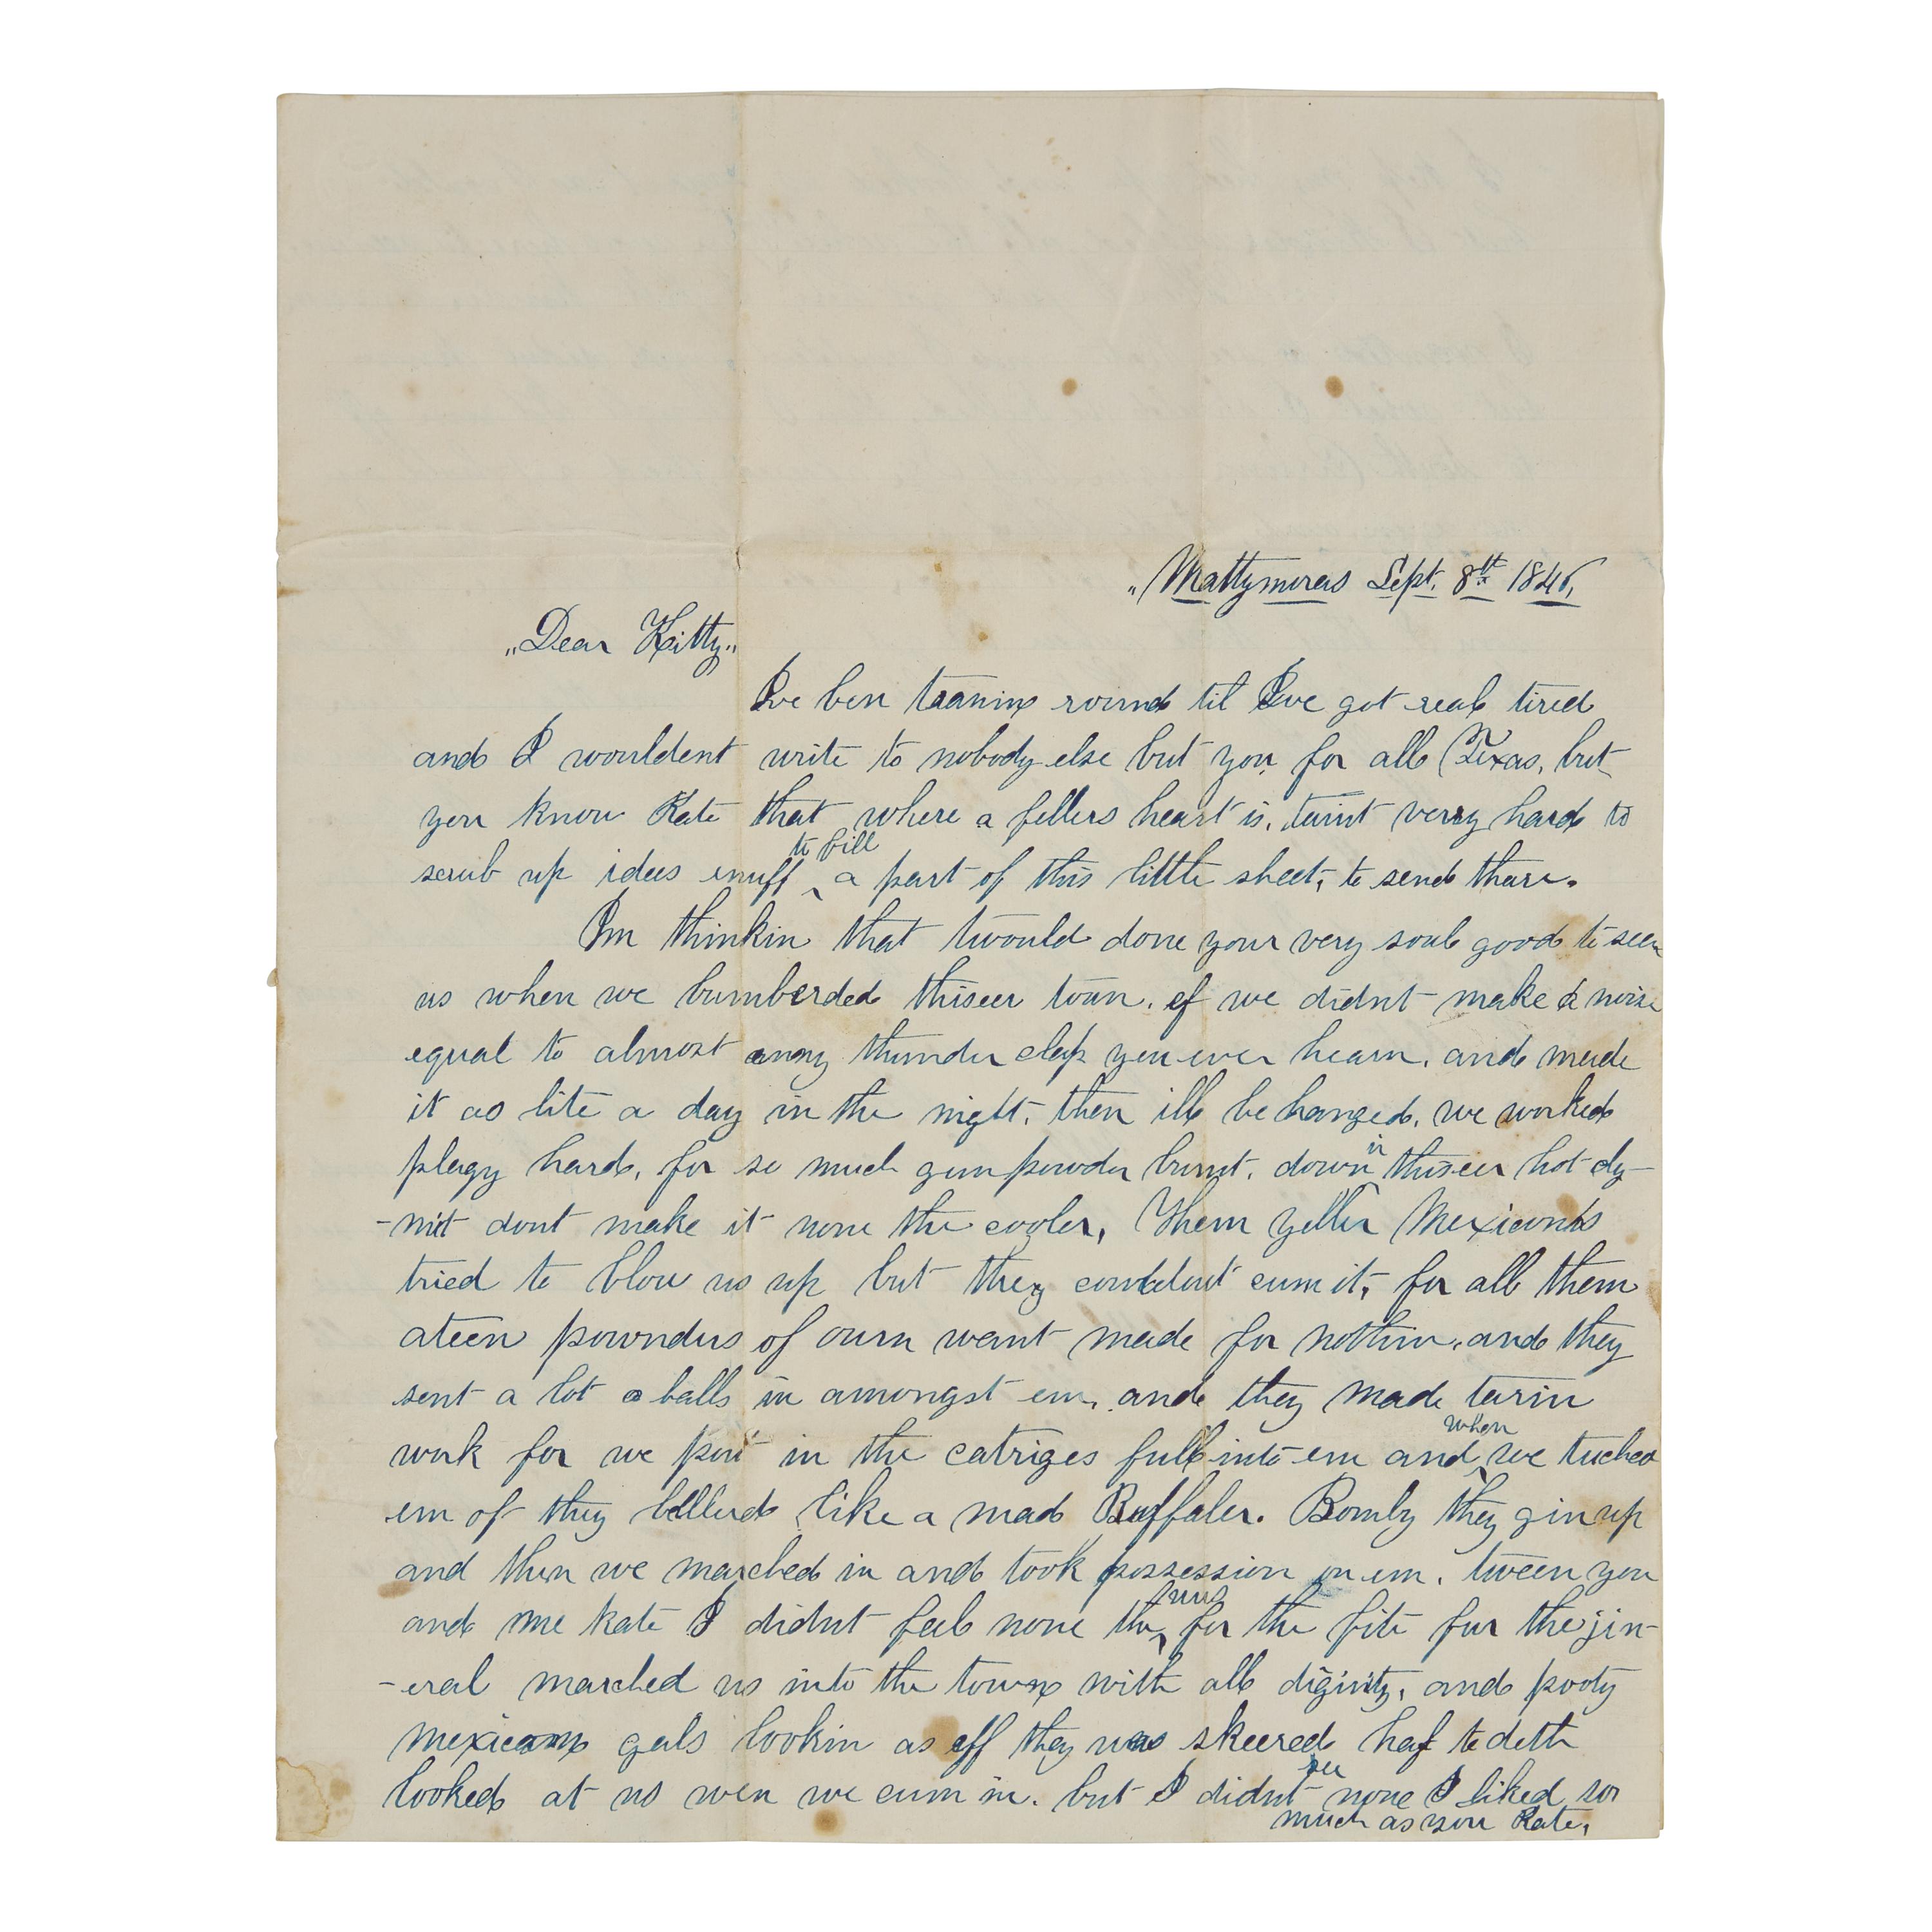 "Mattymoras Sept. 8th 1846,
"Dear Kitty"
Ive ben traanin round til Ive got real tired
and I wouldent write to nobody else but you for all Texas, but
you know Kate that where a fellers heart is, taint verry hard to
to fill
scrub up idees enuff a part of this little sheet, to send thare.
Im thinkin that twould done your very soul good to seen
us when we bumberded thiseer town. ef we didnt make a noise
equal to almost anny thunder clap you ever hearn, and made
it as lite a day in the night, then ill be hanged, we worked
in
plagy hard, for so much gun powder burnt, down thiseer hot cly-
-mit dont make it none the cooler, Them yeller Mexicans
tried to blow us up but they couldent cum it, for all them
ateen pownders of ourn want made for nothin, and they
sent a lot a balls in amongst em, and they made tarin
when
work for we put in the catriges full into em and we tuched
em of they bellerd like a mad Buffaler. Bomby they gin up
and then we marched in and took possession on em, tween you
wus
and me Kate I didnt feel none the for the fite fur the jin-
-eral marched us into the town with all diginity, and pooty
mexican gals lookin as eff they was skeered haf to deth
see
looked at us wen we cum in. but I didnt none I liked so
much as you Kate,